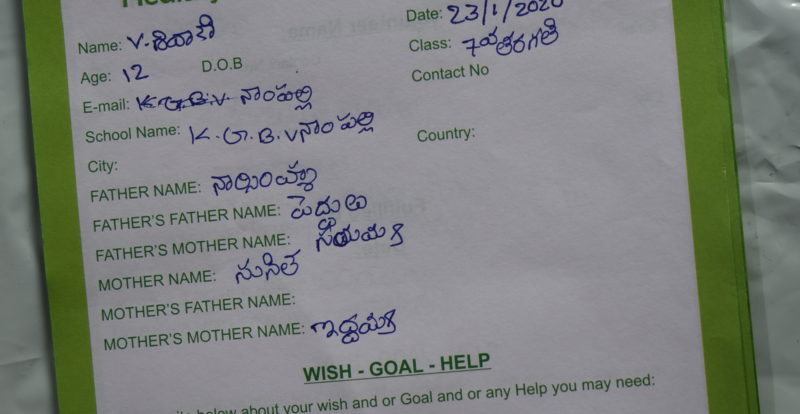 Date: 23/1/2020
Name: V. శివాని
Class: 7వ తరగతి
Age: 12 D.O.B
Contact No
E-mail: K.G.B.V. నాంపల్లి
School Name: K.G.B.V నాంపల్లి
Country:
City:
FATHER NAME:
FATHER'S FATHER NAME: పెద్దులు
FATHER'S MOTHER NAME:
MOTHER NAME: సునీత
MOTHER'S FATHER NAME:
MOTHER'S MOTHER NAME:
WISH - GOAL - HELP
below about your wish and or Goal and or any Help you may need: